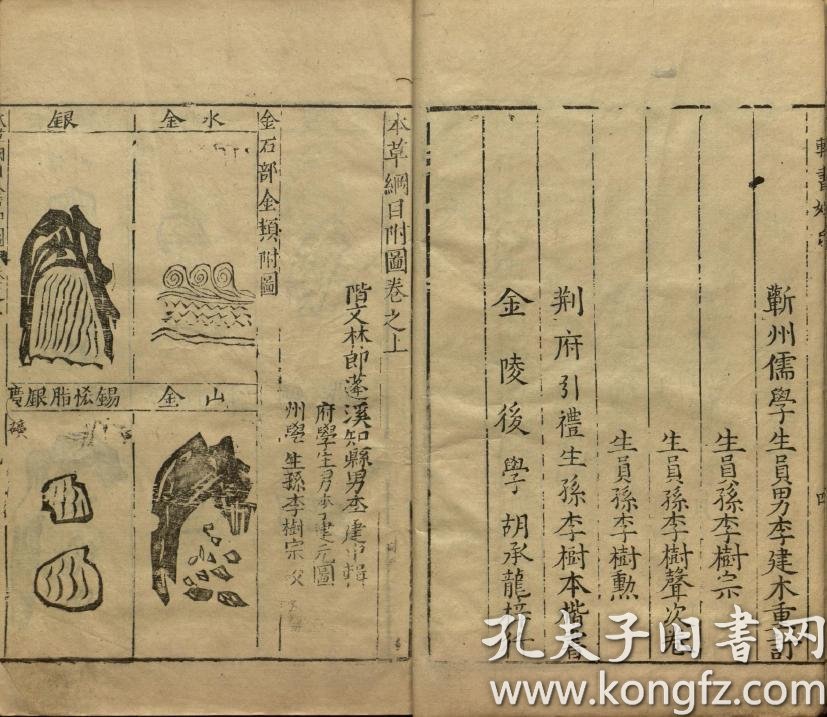 輯書姓氏
蘄州儒學生員男李建木重訂
生員孫李樹宗
生員孫李樹聲次卷
生員孫李樹勳
荆府引禮生孫李樹本楷書
金陵後學胡承龍梓行
四
本草綱目附圖卷之上
階文林郎蓬溪知縣男李建中輯
府學生男李建元圖
州學生孫李樹宗校
金石部金類附圖
水金
山金
銀
錫恡脂銀廣
礦
孔夫子旧書网
www.kongfz.com